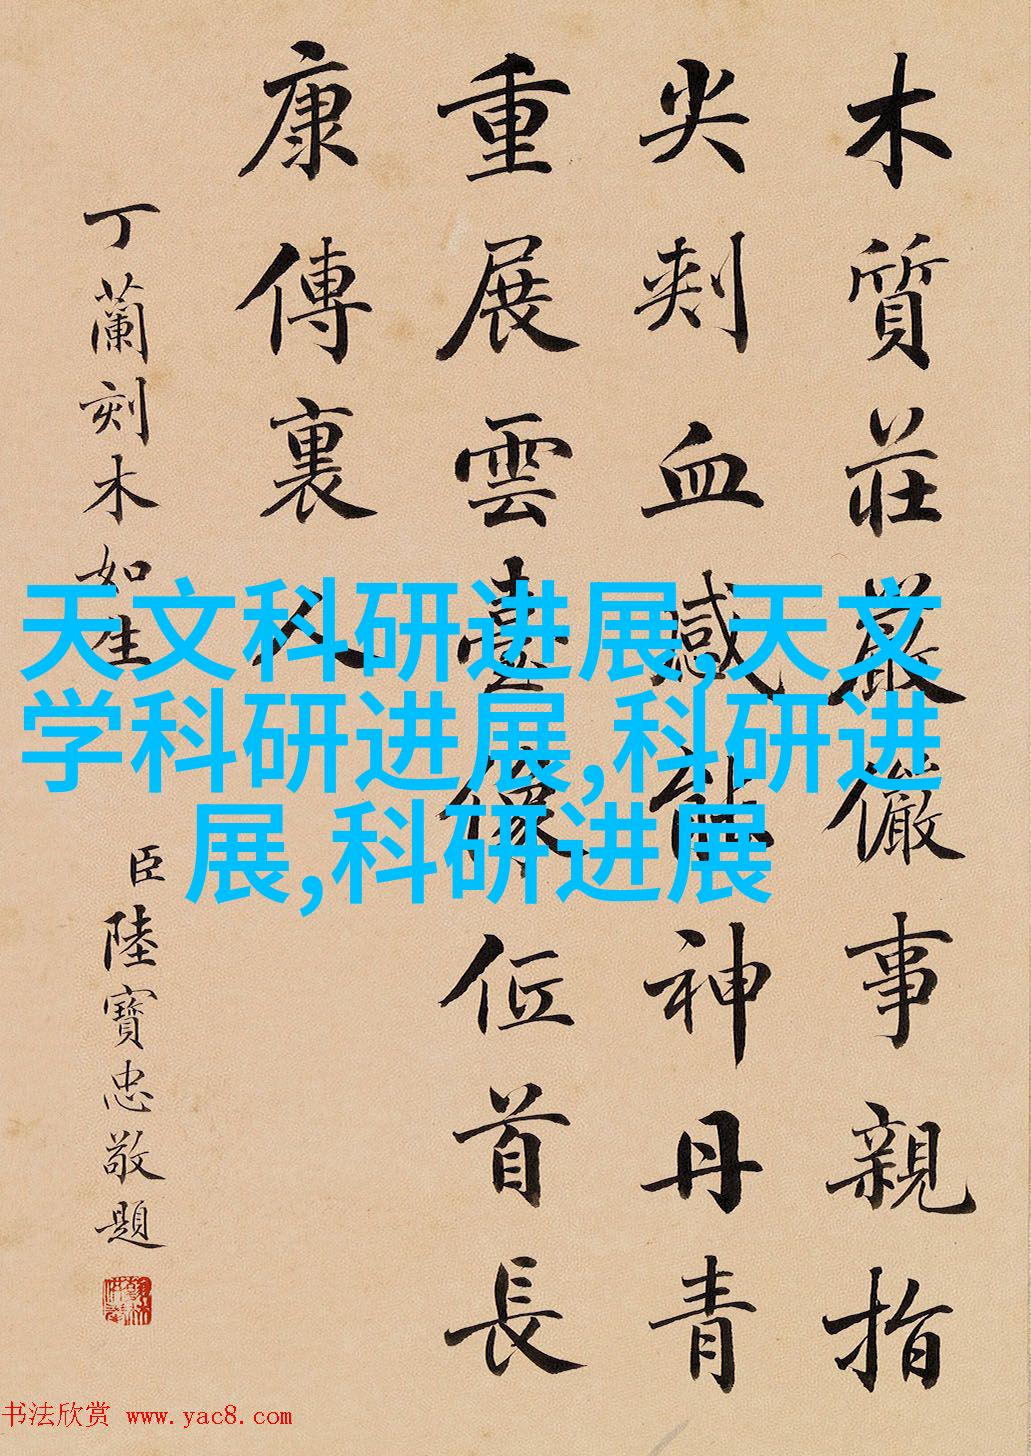 木質莊嚴儼事親指
尖刾血感能神丹青
重展雲臺像位首長
康傳裏人
丁蘭刻木如生
臣陸寶忠敬題
天文科研进展,天文
学科研进展,科研进
展,科研进展
书法欣赏 www.yac8.com